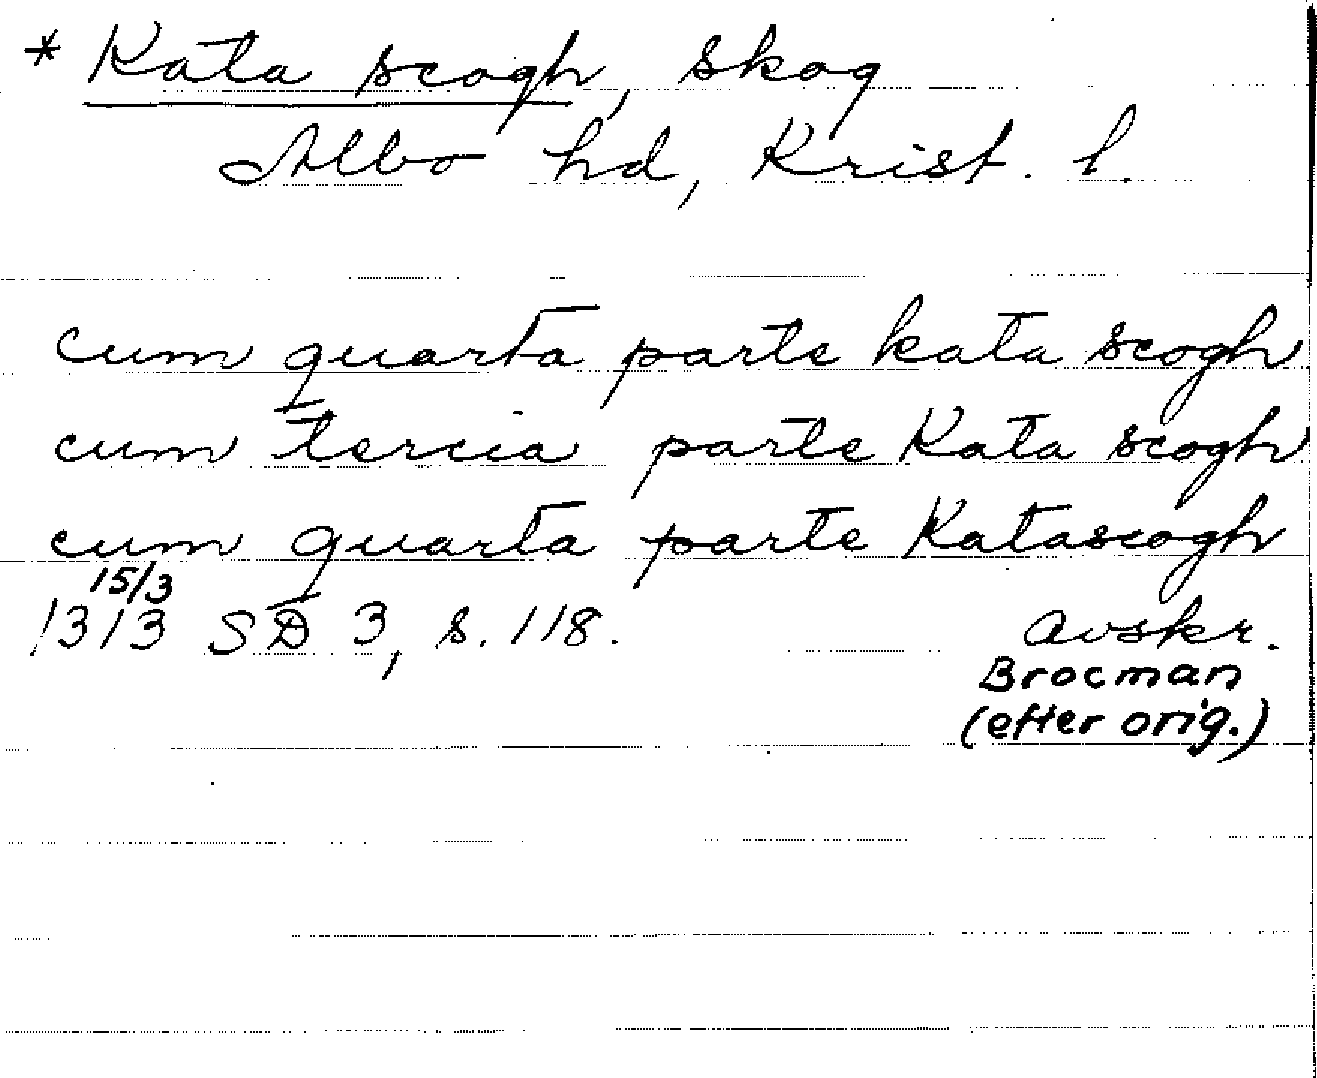 * Kata scogh, skog
Albo hd, Krist. l.
cum quarta parte kata scogh
cum tercia parte Kata scogh
cum quarta parte Katascogh
15/3
1313 SD 3, s. 118. avskr.
Brocman
(efter orig.)